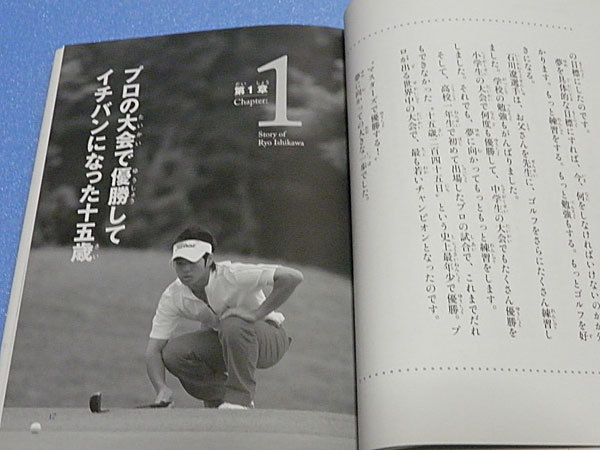 の目標にしたのです。
夢を具体的な目標にすれば、今、何をしなければいけないのかが分
かります。もっと練習をする。もっと勉強もする。もっとゴルフを好
きになる。
石川遼選手は、お父さんを先生に、ゴルフをさらにたくさん練習し
ました。学校の勉強もがんばりました。
小学生の大会で何度も優勝して、中学生の大会でもたくさん優勝を
しました。それでも、夢に向かってもっともっと練習をします。
そして、高校一年生で初めて出場したプロの試合で、これまでだれ
もできなかった「十五歳二百四十五日」という史上最年少で優勝。プ
ロが出る世界中の大会で、最も若いチャンピオンとなったのです。
「マスターズで優勝する!」
夢に向かっての大きな一歩でした。
第1章
Chapter:
1
Story of
Ryo Ishikawa
プロの大会で優勝して
イチバンになった十五歳
12